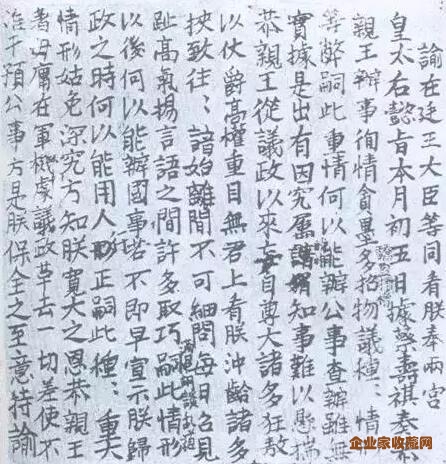 諭在廷王大臣等同看朕奉兩宮
皇太后懿旨本月初五日據蔡壽祺奏恭
親王辦事徇情貪墨多招物議種〻情形
等弊嗣此重情何以能辦公事查辦雖無
實據是出有因究屬知事難以懸揣
恭親王從議政以來妄自尊大諸多狂敖
以仗爵高權重目無君上看朕沖齡諸多
挾致往〻諳始離間不可細問每日召見
趾高氣揚言語之間許多取巧滿口胡談亂道嗣此情形
以後何以能辦國事若不即早宣示朕歸
政之時何以能用人行正嗣此種〻重大
情形姑免深究方知朕寬大之恩恭親王
著毋庸在軍機處議政革去一切差使不
准干預公事方是朕保全之至意特諭
企业家收藏网